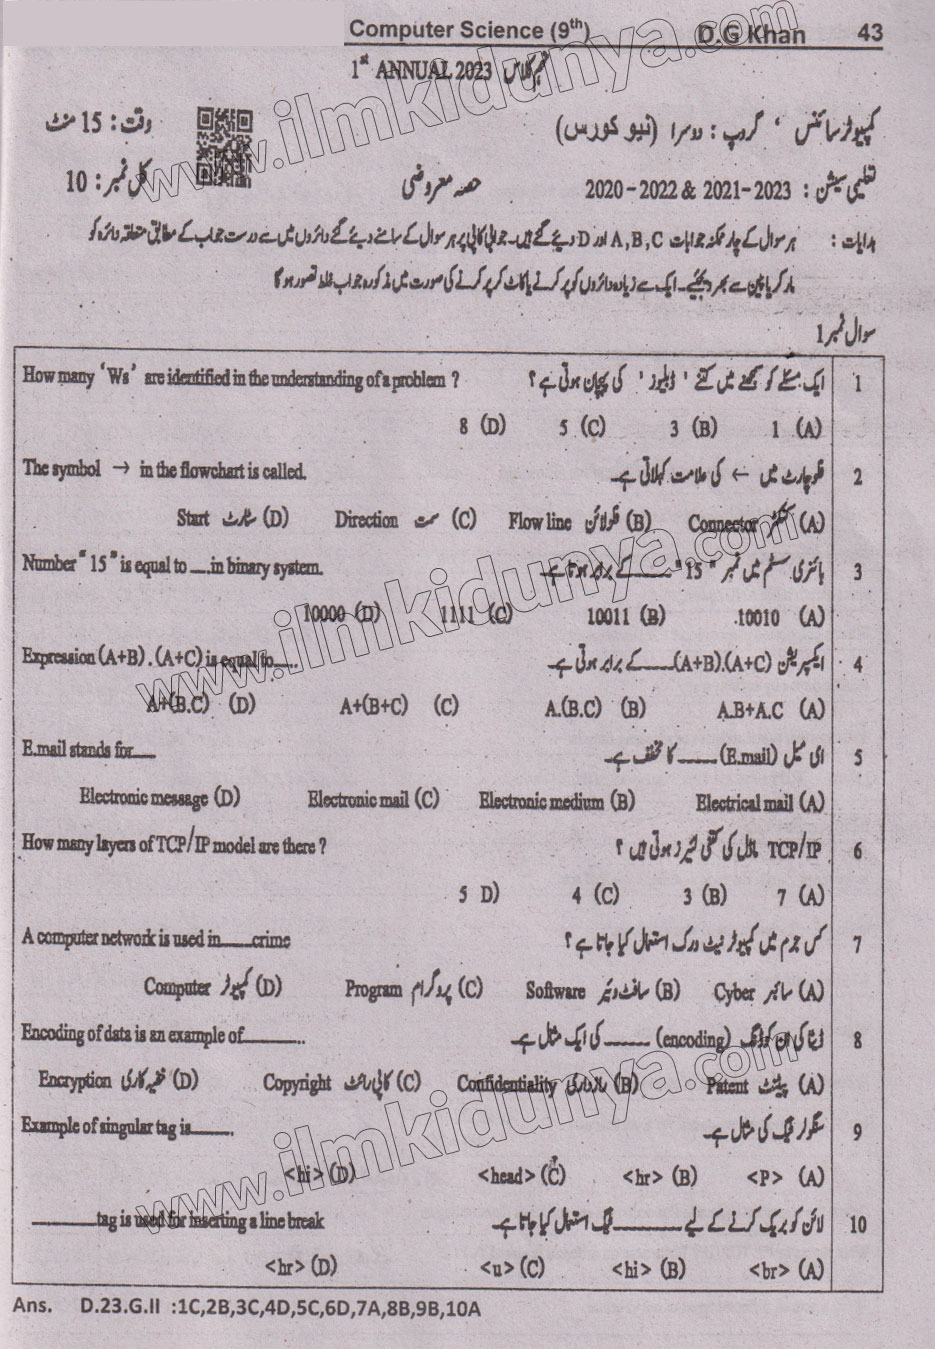 Computer Science (9th) D.G Khan 43
1st ANNUAL 2023 نہم کلاس
کمپیوٹر سائنس ، گروپ : دوسرا (نیو کورس) وقت : 15 منٹ
تعلیمی سیشن : 2020-2022 & 2021-2023 حصہ معروضی کل نمبر : 10
ہدایات : ہر سوال کے چار ممکنہ جوابات A,B,C اور D دیئے گئے ہیں۔ جوابی کاپی پر ہر سوال کے سامنے دیئے گئے دائروں میں سے درست جواب کے مطابق متعلقہ دائرہ کو
مارکر یا پین سے بھر دیجئیے۔ ایک سے زیادہ دائروں کو پر کرنے یا کاٹ کر پر کرنے کی صورت میں مذکورہ جواب غلط تصور ہو گا
سوال نمبر 1
How many 'Ws' are identified in the understanding of a problem ? ایک مسئلے کو سمجھنے میں کتنے ' ڈبلیوز ' کی پہچان ہوتی ہے ؟ 1
8 (D) 5 (C) 3 (B) 1 (A)
The symbol → in the flowchart is called. فلوچارٹ میں ← کی علامت کہلاتی ہے۔ 2
Start سٹارٹ (D) Direction سمت (C) Flow line فلولائن (B) Connector کنیکٹر (A)
Number "15" is equal to ....in binary system. بائنری سسٹم میں نمبر "15"......کے برابر ہوتا ہے۔ 3
10000 (D) 1111 (C) 10011 (B) 10010 (A)
Expression (A+B).(A+C) is equal to..... ایکسپریشن (A+B).(A+C)......کے برابر ہوتی ہے۔ 4
A+(B.C) (D) A+(B+C) (C) A.(B.C) (B) A.B+A.C (A)
E.mail stands for..... ای میل (E.mail) ...... کا مخفف ہے۔ 5
Electronic message (D) Electronic mail (C) Electronic medium (B) Electrical mail (A)
How many layers of TCP/IP model are there ? TCP/IP ماڈل کی کتنی لئیرز ہوتی ہیں ؟ 6
5 D) 4 (C) 3 (B) 7 (A)
A computer network is used in.......crime کس جرم میں کمپیوٹر نیٹ ورک استعمال کیا جاتا ہے ؟ 7
Computer کمپیوٹر (D) Program پروگرام (C) Software سافٹ وئیر (B) Cyber سائبر (A)
Encoding of data is an example of............. ڈیٹا کی ان کوڈنگ (encoding) ....... کی ایک مثال ہے۔ 8
Encryption خفیہ کاری (D) Copyright کاپی رائٹ (C) Confidentiality رازداری (B) Patent پیٹنٹ (A)
Example of singular tag is......... سنگولر ٹیگ کی مثال ہے۔ 9
<hi> (D) <head> (C) <hr> (B) <P> (A)
.............tag is used for inserting a line break لائن کو بریک کرنے کے لیے ............. ٹیگ استعمال کیا جاتا ہے۔ 10
<hr> (D) <u> (C) <hi> (B) <br> (A)
Ans. D.23.G.II :1C,2B,3C,4D,5C,6D,7A,8B,9B,10A
www.ilmkidunya.com
www.ilmkidunya.com
www.ilmkidunya.com